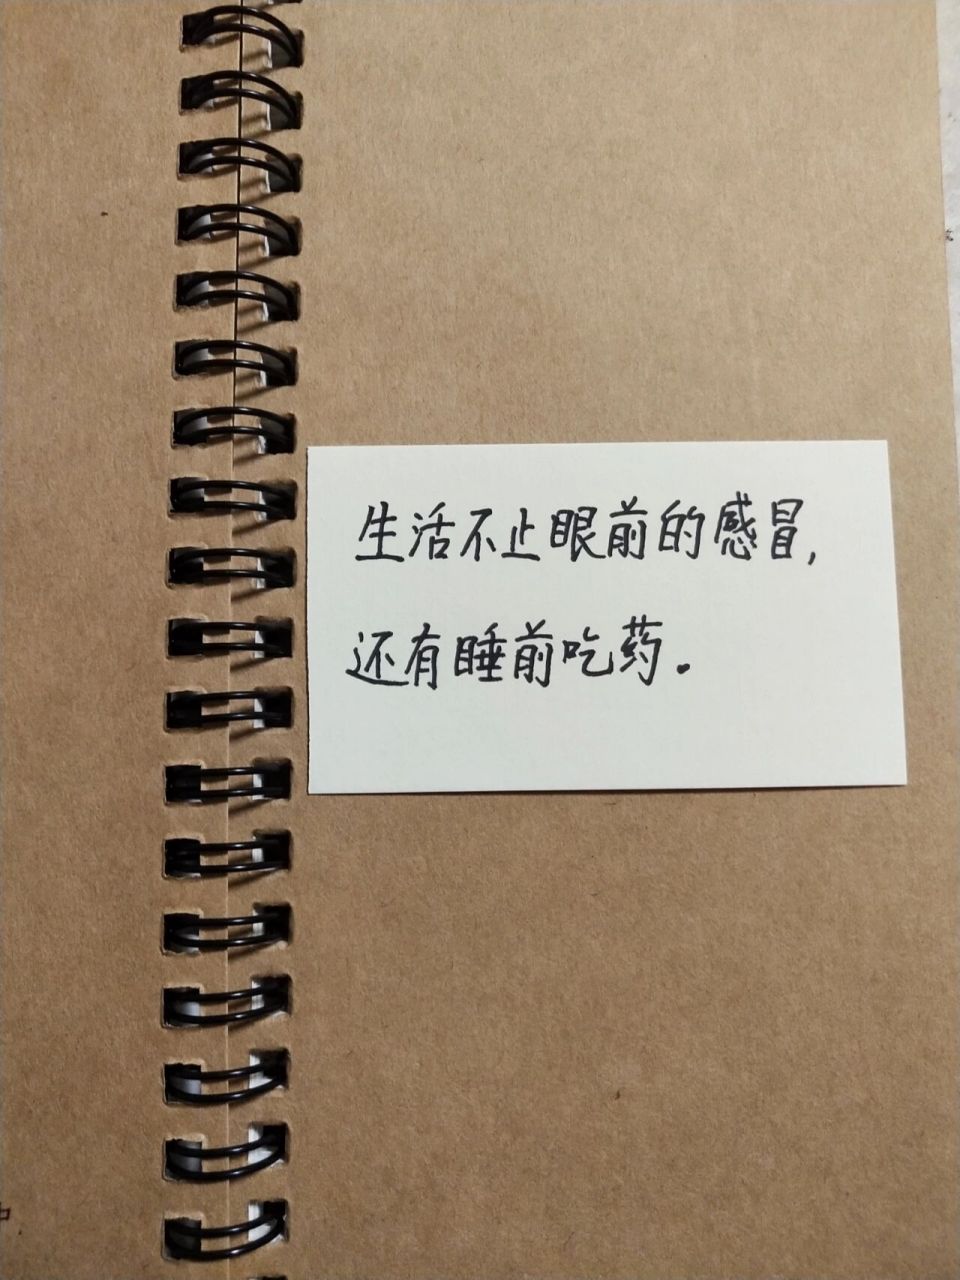 生活不止眼前的感冒,
还有睡前吃药.